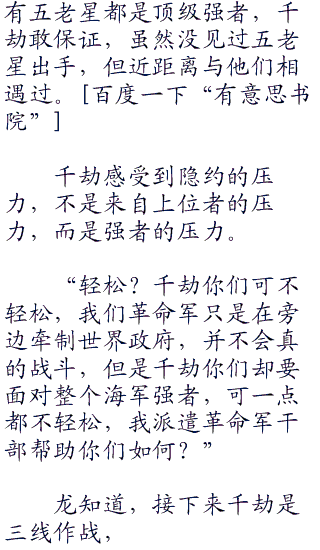 有五老星都是顶级强者，千
劫敢保证，虽然没见过五老
星出手，但近距离与他们相
遇过。[百度一下“有意思书
院”]
千劫感受到隐约的压
力，不是来自上位者的压
力，而是强者的压力。
“轻松？千劫你们可不
轻松，我们革命军只是在旁
边牵制世界政府，并不会真
的战斗，但是千劫你们却要
面对整个海军强者，可一点
都不轻松，我派遣革命军干
部帮助你们如何？”
龙知道，接下来千劫是
三线作战，